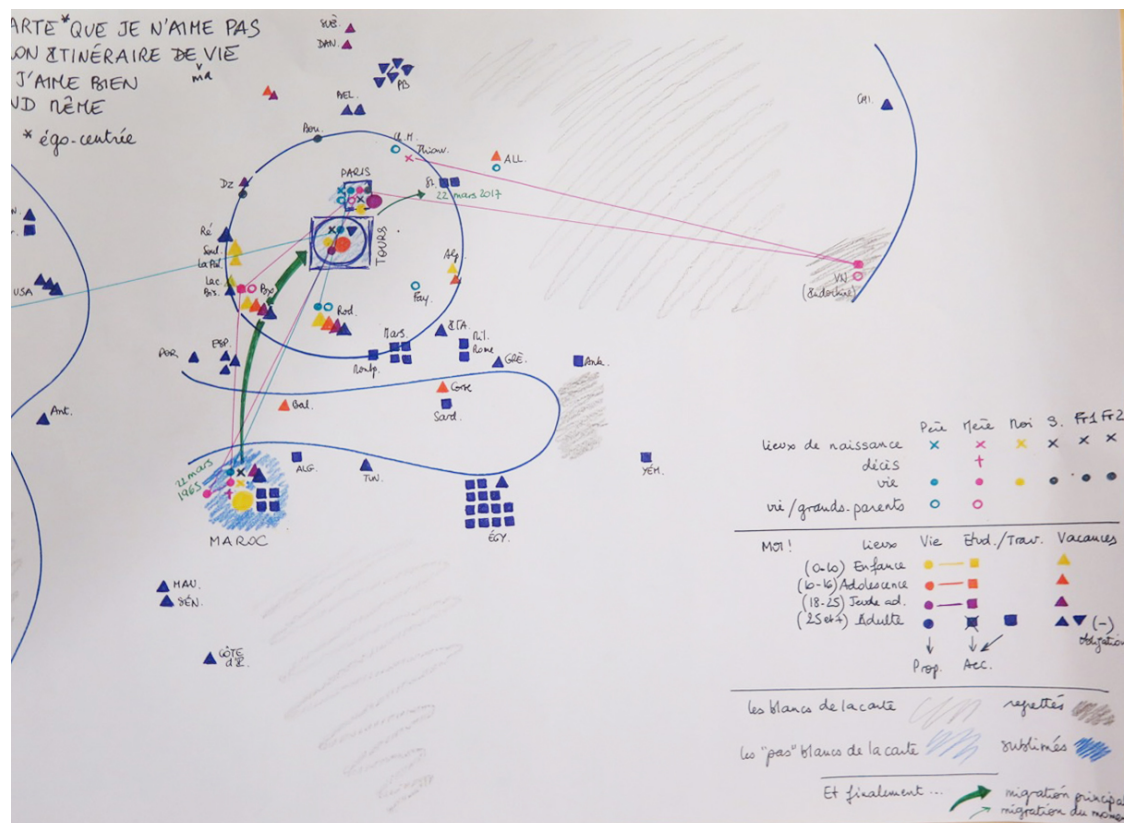 ARTE* QUE JE N'AIME PAS
ON ITINÉRAIRE DE VIE
ma
J'AIME BIEN
ND MÊME
* égo-centrée
SUÈ.
DAN.
PB
BEL.
Bou.
Thionv.
ALL.
CHI.
PARIS
DZ
St.
22 mars 2017
Ré
TOURS
Soul.
La Pal.
Lac.
Bis.
Bx
Alp.
Fay.
USA
Rod.
Mars.
ITA.
Mil.
Rome
VN
(Indochine)
POR.
ESP.
Montp.
GRÈ.
Ank.
Ant.
Bal.
Corse
Sard.
22 mars
1965
ALG.
TUN.
YÉM.
MAROC
ÉGY.
MAU.
SÉN.
CÔTE
d'I.
Père Mère Moi S. Fr1 Fr2
lieux de naissance
décès
vie
vie/grands-parents
MOI ! Lieux Vie Etud./Trav. Vacances
(0-10) Enfance
(10-16) Adolescence
(18-25) Jeune ad.
(25 et +) Adulte (-)
obligation
Prop. Acc.
les blancs de la carte regrettés
les "pas" blancs de la carte sublimés
Et finalement ... migration principal
migration du momen